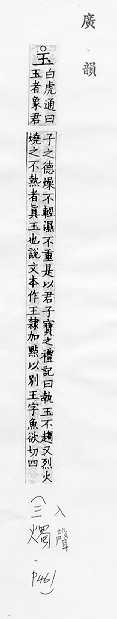 廣韻
玉
白虎通曰玉者象君
子之德燥不輕濕不重是以君子寶之禮記曰執玉不趨又烈火
燒之不熱者真玉也說文本作王隸加點以別王字魚欲切四
入聲
(三燭
p461)